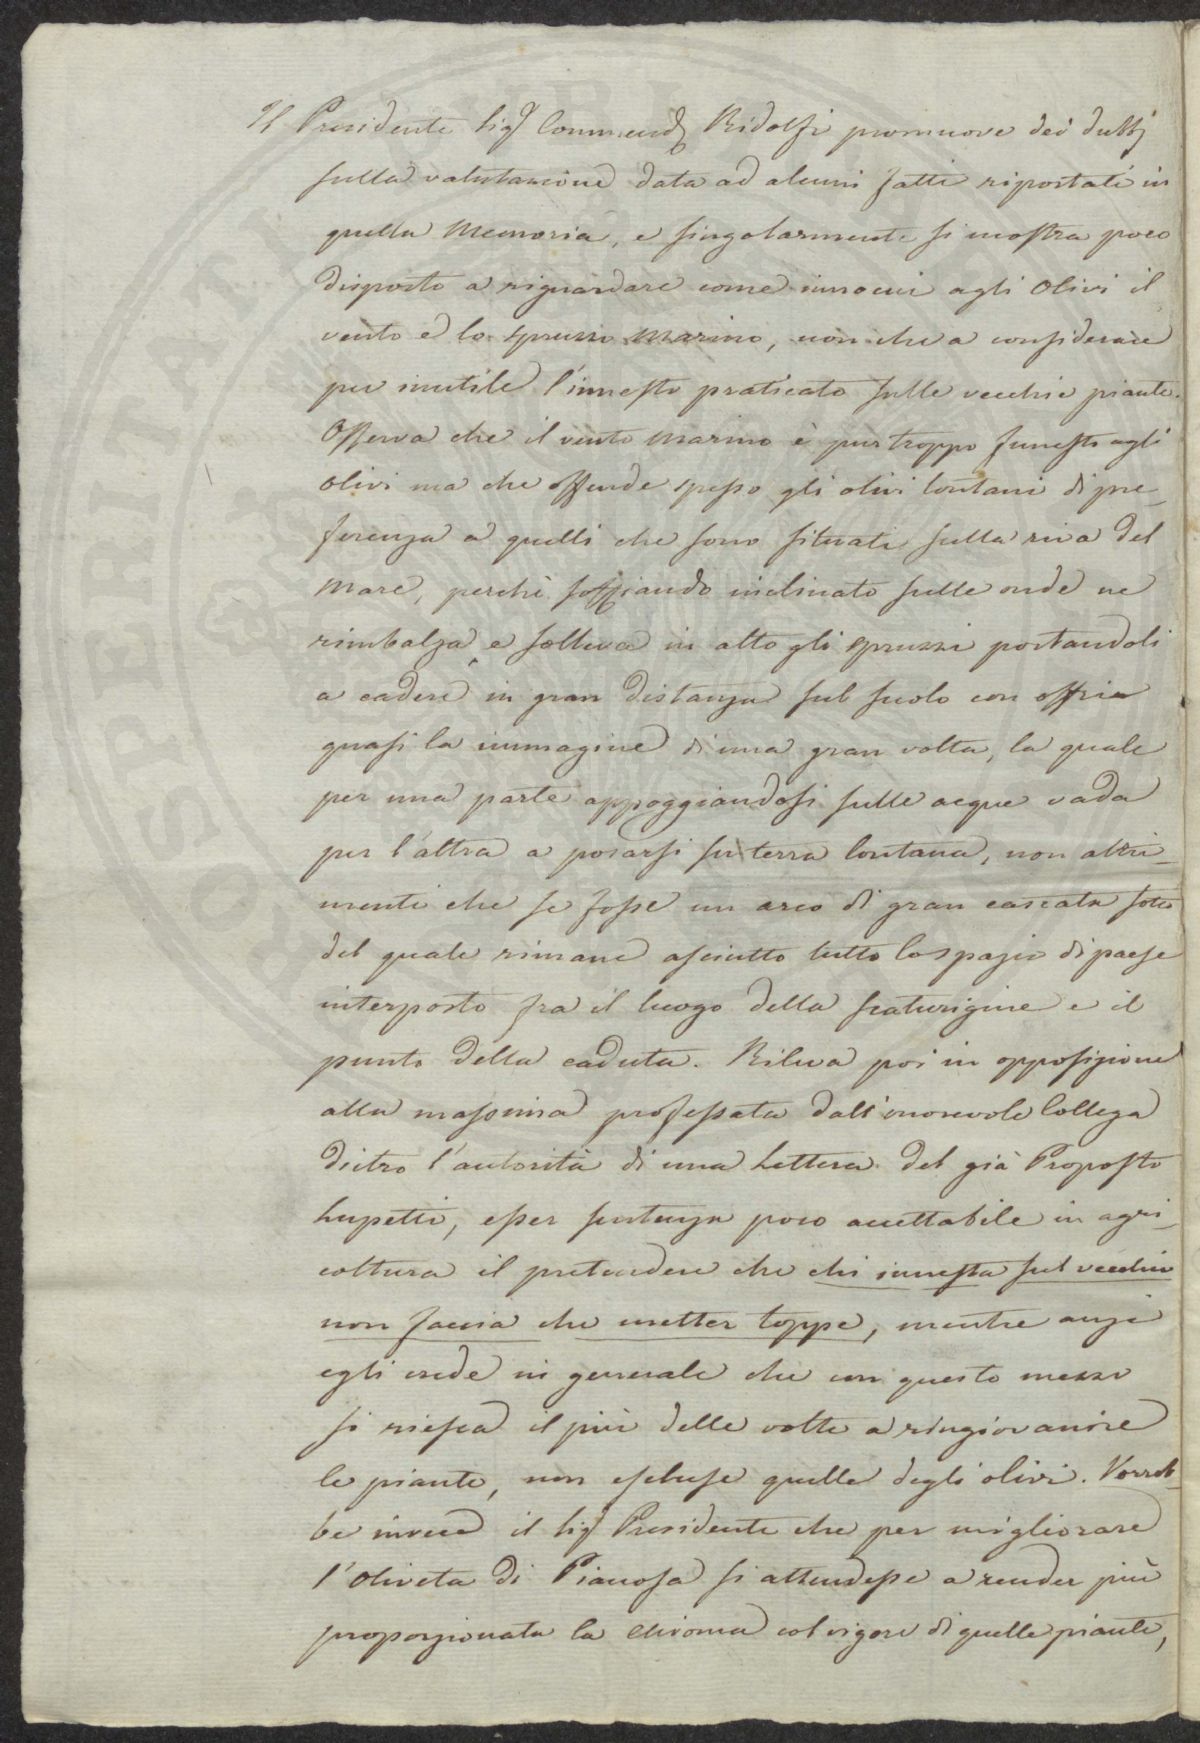 Il Presidente Sig.r Commend.e Ridolfi promuove dei dubbj
sulla valutazione data ad alcuni fatti riportati in
quella Memoria, e singolarmente si mostra poco
disposto a riguardare come innocui agli Olivi il
vento e lo spruzzo marino, non che a considerare
per inutile l'innesto praticato sulle vecchie piante.
Osserva che il vento marino è purtroppo funesto agli
olivi ma che offende spesso gli olivi lontani di pre-
ferenza a quelli che sono situati sulla riva del
Mare, perchè soffiando inclinato sulle onde ne
rimbalza e solleva in alto gli spruzzi portandoli
a cadere in gran distanza sul suolo con offrir
quasi la immagine di una gran volta, la quale
per una parte appoggiandosi sulle acque vada
per l'altra a posarsi su terra lontana, non altri-
menti che se fosse un arco di gran cascata sotto
del quale rimane asciutto tutto lo spazio di paese
interposto fra il luogo della scaturigine e il
punto della caduta. Rileva poi in opposizione
alla massima professata dall'onorevole Collega
dietro l'autorità di una Lettera del già Proposto
Lupetti, esser sentenza poco accettabile in agri-
coltura il pretendere che chi innesta sul vecchio
non faccia che metter toppe, mentre anzi
egli crede in generale che con questo mezzo
si riesca il più delle volte a ringiovanire
le piante, non escluse quelle degli olivi. Vorreb-
be invece il Sig.r Presidente che per migliorare
l'Oliveta di Pianosa si attendesse a render più
proporzionata la chioma col vigore di quelle piante,